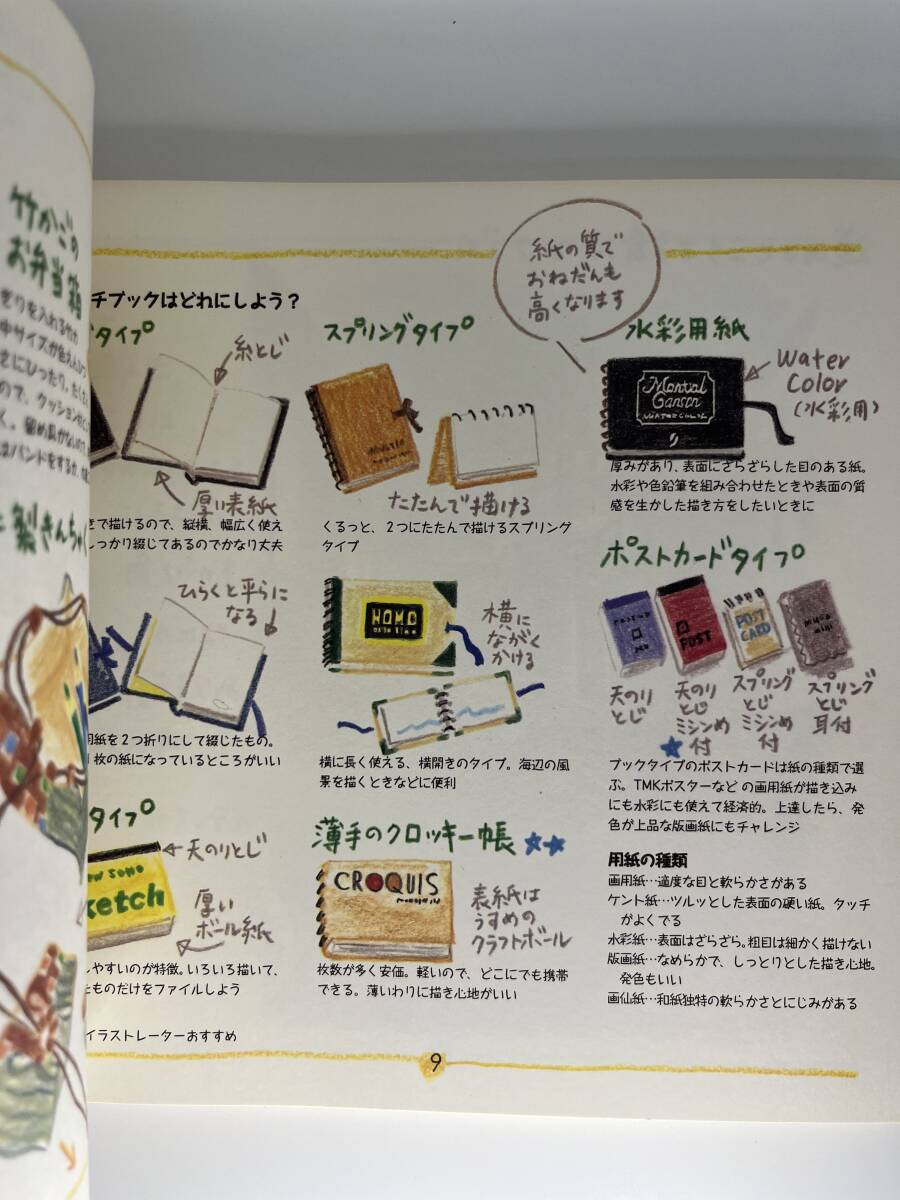 竹かごの
お弁当箱
ぎりを入れる竹か
中サイズが色えんぴつ
さにぴったり。たくさん
ので、クッションが
く。留め具がないので
はバンドをするか、
製きんちゃく
チブックはどれにしよう？
タイプ
糸とじ
厚い表紙
きで描けるので、縦横、幅広く使え
しっかり綴じてあるのでかなり丈夫
ひらくと平らに
なる
用紙を２つ折りにして綴じたもの。
１枚の紙になっているところがいい
タイプ
天のりとじ
SOHO
ketch
厚い
ボール紙
しやすいのが特徴。いろいろ描いて、
たものだけをファイルしよう
イラストレーターおすすめ
スプリングタイプ
たたんで描ける
くるっと、２つにたたんで描けるスプリング
タイプ
HOMO
横に
ながく
かける
横に長く使える、横開きのタイプ。海辺の風
景を描くときなどに便利
薄手のクロッキー帳 ★★
CROQUIS
表紙は
うすめの
クラフトボール
枚数が多く安価。軽いので、どこにでも携帯
できる。薄いわりに描き心地がいい
紙の質で
おねだんも
高くなります
水彩用紙
Montval
Canson
WATERCOLOR
Water
Color
(水彩用)
厚みがあり、表面にざらざらした目のある紙。
水彩や色鉛筆を組み合わせたときや表面の質
感を生かした描き方をしたいときに
ポストカードタイプ
POST
POST
CARD
天のり
とじ
天のり
とじ
ミシンめ
付
★
スプリング
とじ
ミシンめ
付
スプリング
とじ
耳付
ブックタイプのポストカードは紙の種類で選
ぶ。TMKポスターなど の画用紙が描き込み
にも水彩にも使えて経済的。上達したら、発
色が上品な版画紙にもチャレンジ
用紙の種類
画用紙…適度な目と軟らかさがある
ケント紙…ツルッとした表面の硬い紙。タッチ
がよくでる
水彩紙…表面はざらざら。粗目は細かく描けない
版画紙…なめらかで、しっとりとした描き心地。
発色もいい
画仙紙…和紙独特の軟らかさとにじみがある
9